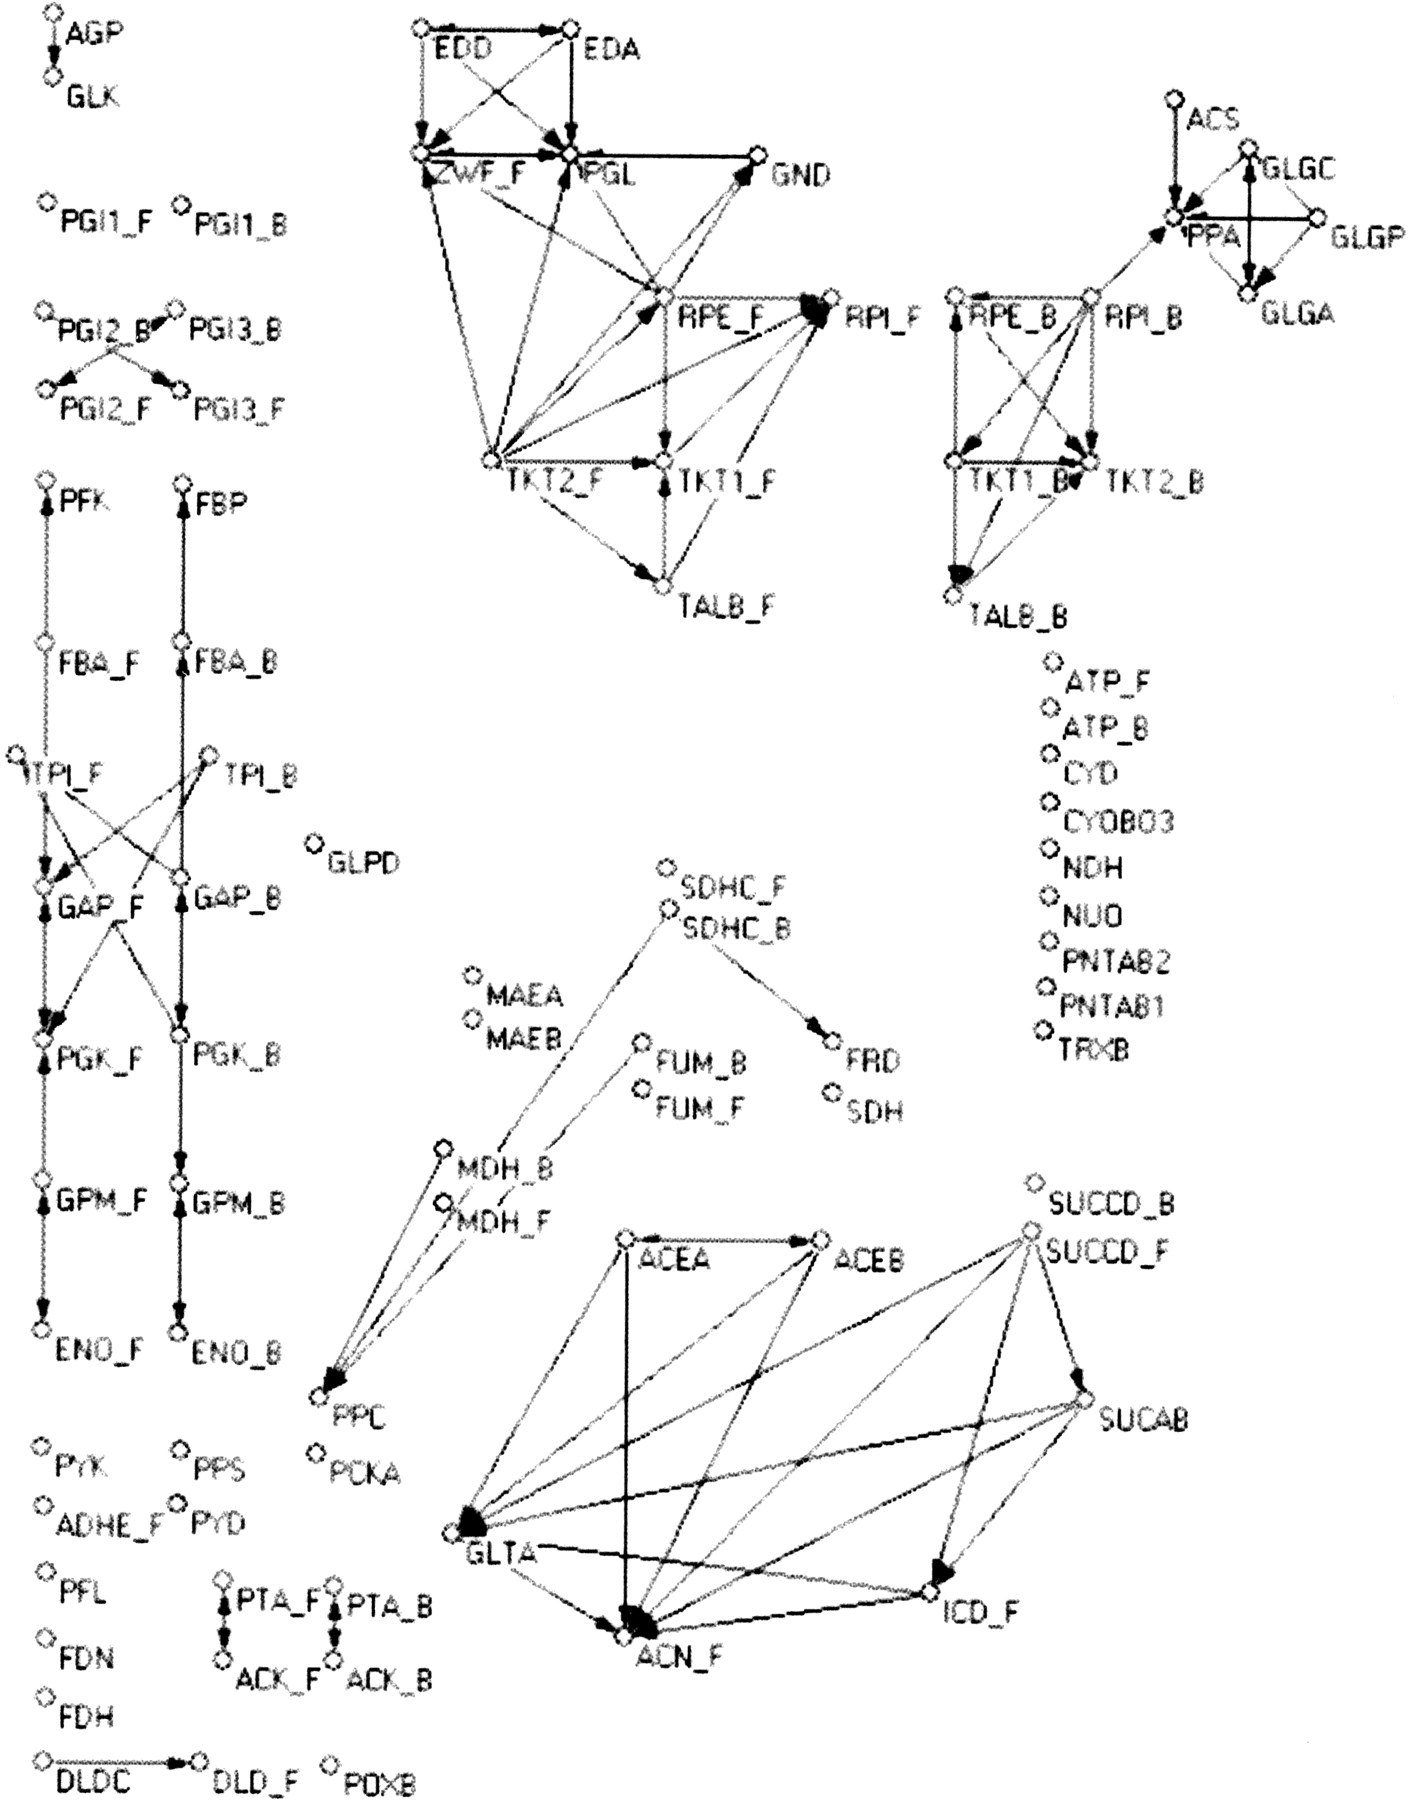 AGP
GLK
EDD
EDA
ZWF_F
PGL
GND
ACS
GLGC
PPA
GLGP
GLGA
PGI1_F
PGI1_B
PGI2_B
PGI3_B
PGI2_F
PGI3_F
RPE_F
RPI_F
RPE_B
RPI_B
TKT2_F
TKT1_F
TKT1_B
TKT2_B
TALB_F
TALB_B
PFK
FBP
FBA_F
FBA_B
TPI_F
TPI_B
GLPD
GAP_F
GAP_B
PGK_F
PGK_B
GPM_F
GPM_B
ENO_F
ENO_B
ATP_F
ATP_B
CYD
CYOBO3
NDH
NUO
PNTAB2
PNTAB1
TRXB
SDHC_F
SDHC_B
MAEA
MAEB
FUM_B
FUM_F
FRD
SDH
MDH_B
MDH_F
SUCCD_B
SUCCD_F
ACEA
ACEB
PPC
PCKA
SUCAB
GLTA
ICD_F
ACN_F
PYK
PPS
ADHE_F
PYD
PFL
PTA_F
PTA_B
FDN
ACK_F
ACK_B
FDH
DLDC
DLD_F
POXB